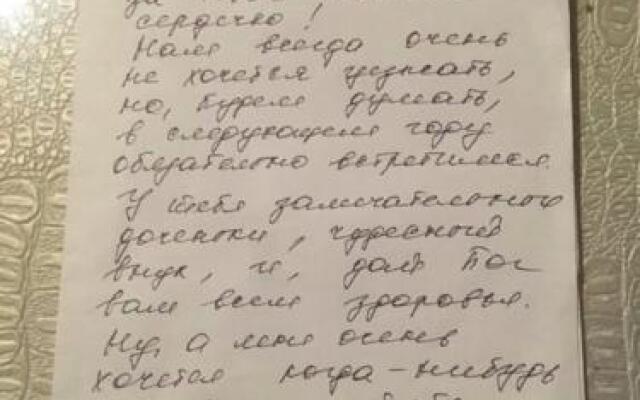 за
сердечко!
Нам всегда очень
не хочется уезжать,
но, будем думать,
в следующем году
обязательно встретимся.
У тебя замечательные
доченьки, чудесный
внук, и, дай Бог
вам всем здоровья.
Ну, а мне очень
хочется когда-нибудь